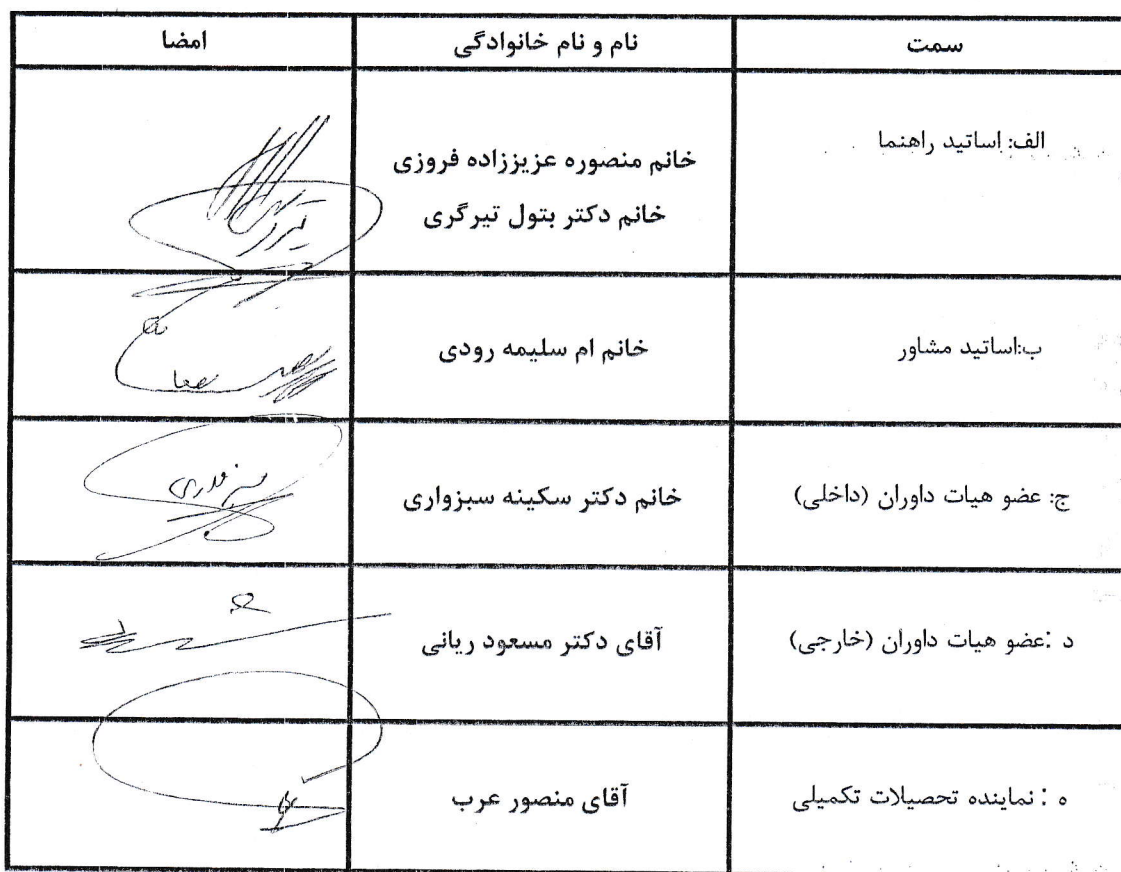 سمت نام و نام خانوادگی امضا
الف: اساتید راهنما
خانم منصوره عزیززاده فروزی
خانم دکتر بتول تیرگری
ب:اساتید مشاور خانم ام سلیمه رودی
ج: عضو هیات داوران (داخلی) خانم دکتر سکینه سبزواری
د :عضو هیات داوران (خارجی) آقای دکتر مسعود ریانی
ه : نماینده تحصیلات تکمیلی آقای منصور عرب